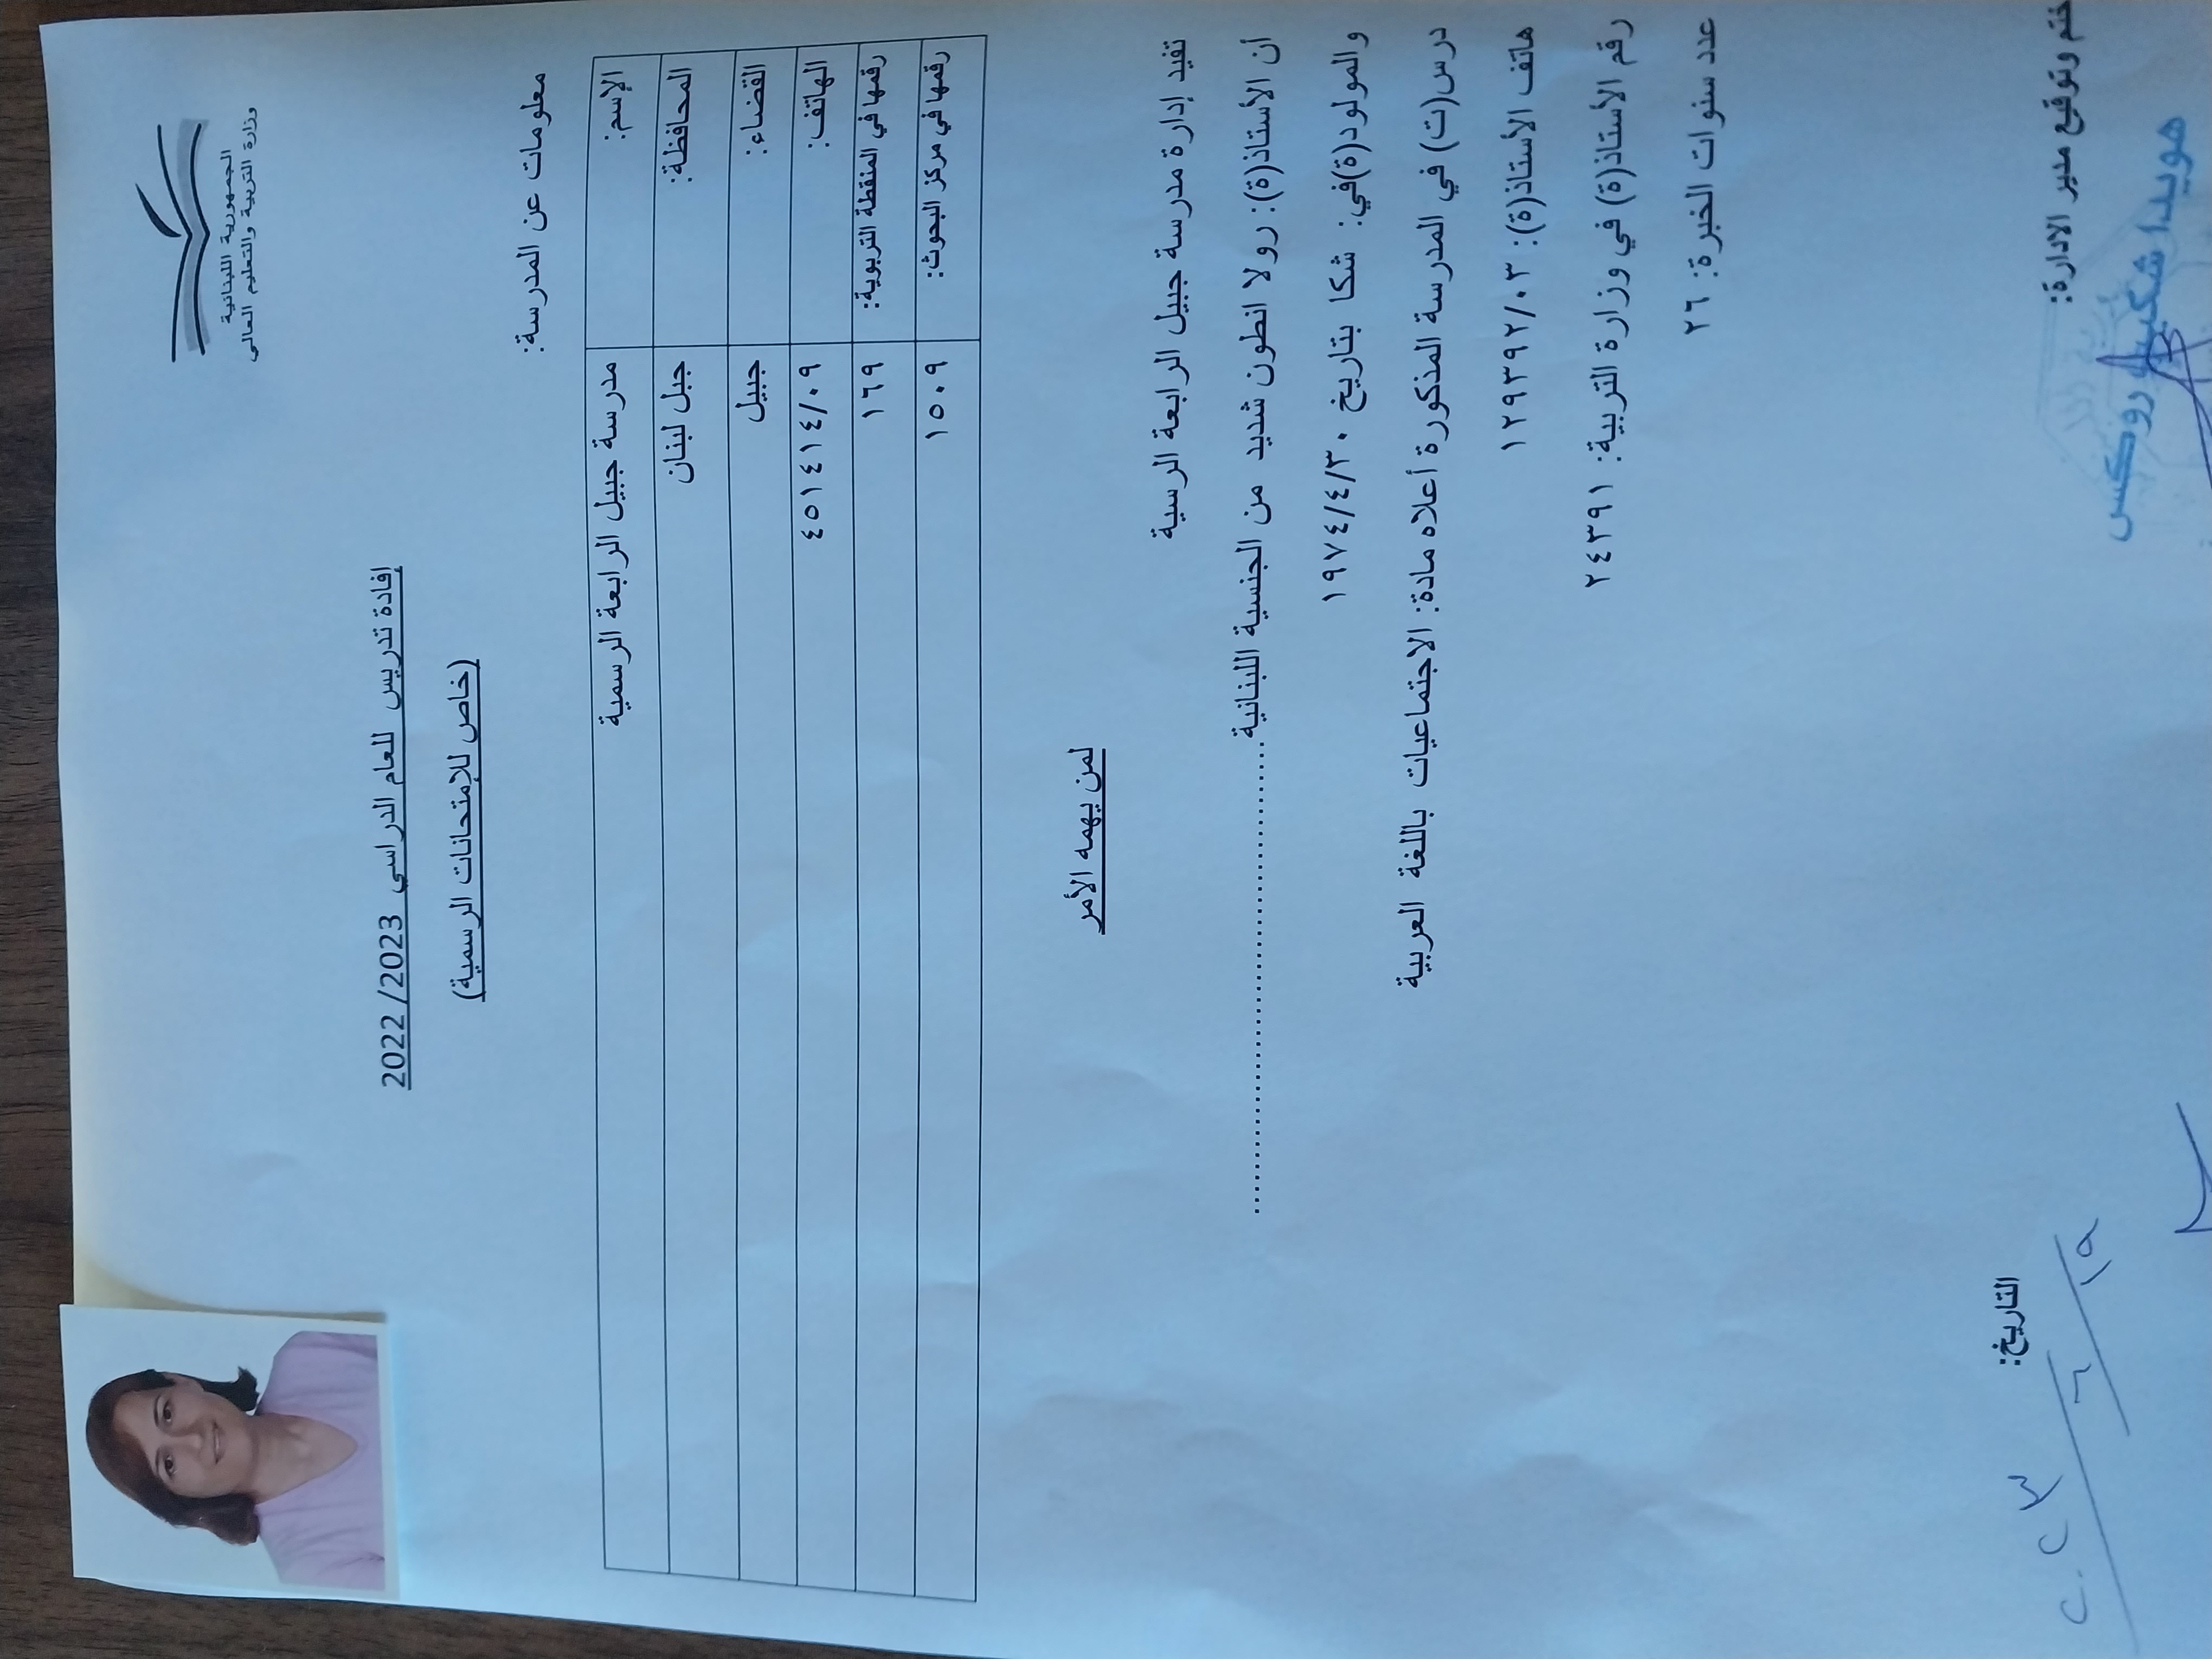 الجمهورية اللبنانية
وزارة التربية والتعليم العالي
إفادة تدريس للعام الدراسي 2022/2023
(خاص للإمتحانات الرسمية)
معلومات عن المدرسة:
الإسم: مدرسة جبيل الرابعة الرسمية
المحافظة: جبل لبنان
القضاء: جبيل
الهاتف: ٤٥١٤١٤/٠٩
رقمها في المنقطة التربوية: ١٦٩
رقمها في مركز البحوث: ١٥٠٩
لمن يهمه الأمر
تفيد إدارة مدرسة جبيل الرابعة الرسية
أن الأستاذ(ة): رولا انطون شديد من الجنسية اللبنانية
والمولود(ة)في: شكا بتاريخ ١٩٧٤/٤/٣٠
درس(ت) في المدرسة المذكورة أعلاه مادة: الاجتماعيات باللغة العربية
هاتف الأستاذ(ة): ١٢٩٣٩٢/٠٣
رقم الأستاذ(ة) في وزارة التربية: ٢٤٣٩١
عدد سنوات الخبرة: ٢٦
ختم وتوقيع مدير الادارة:
هويدا شكيب روكس
التاريخ: